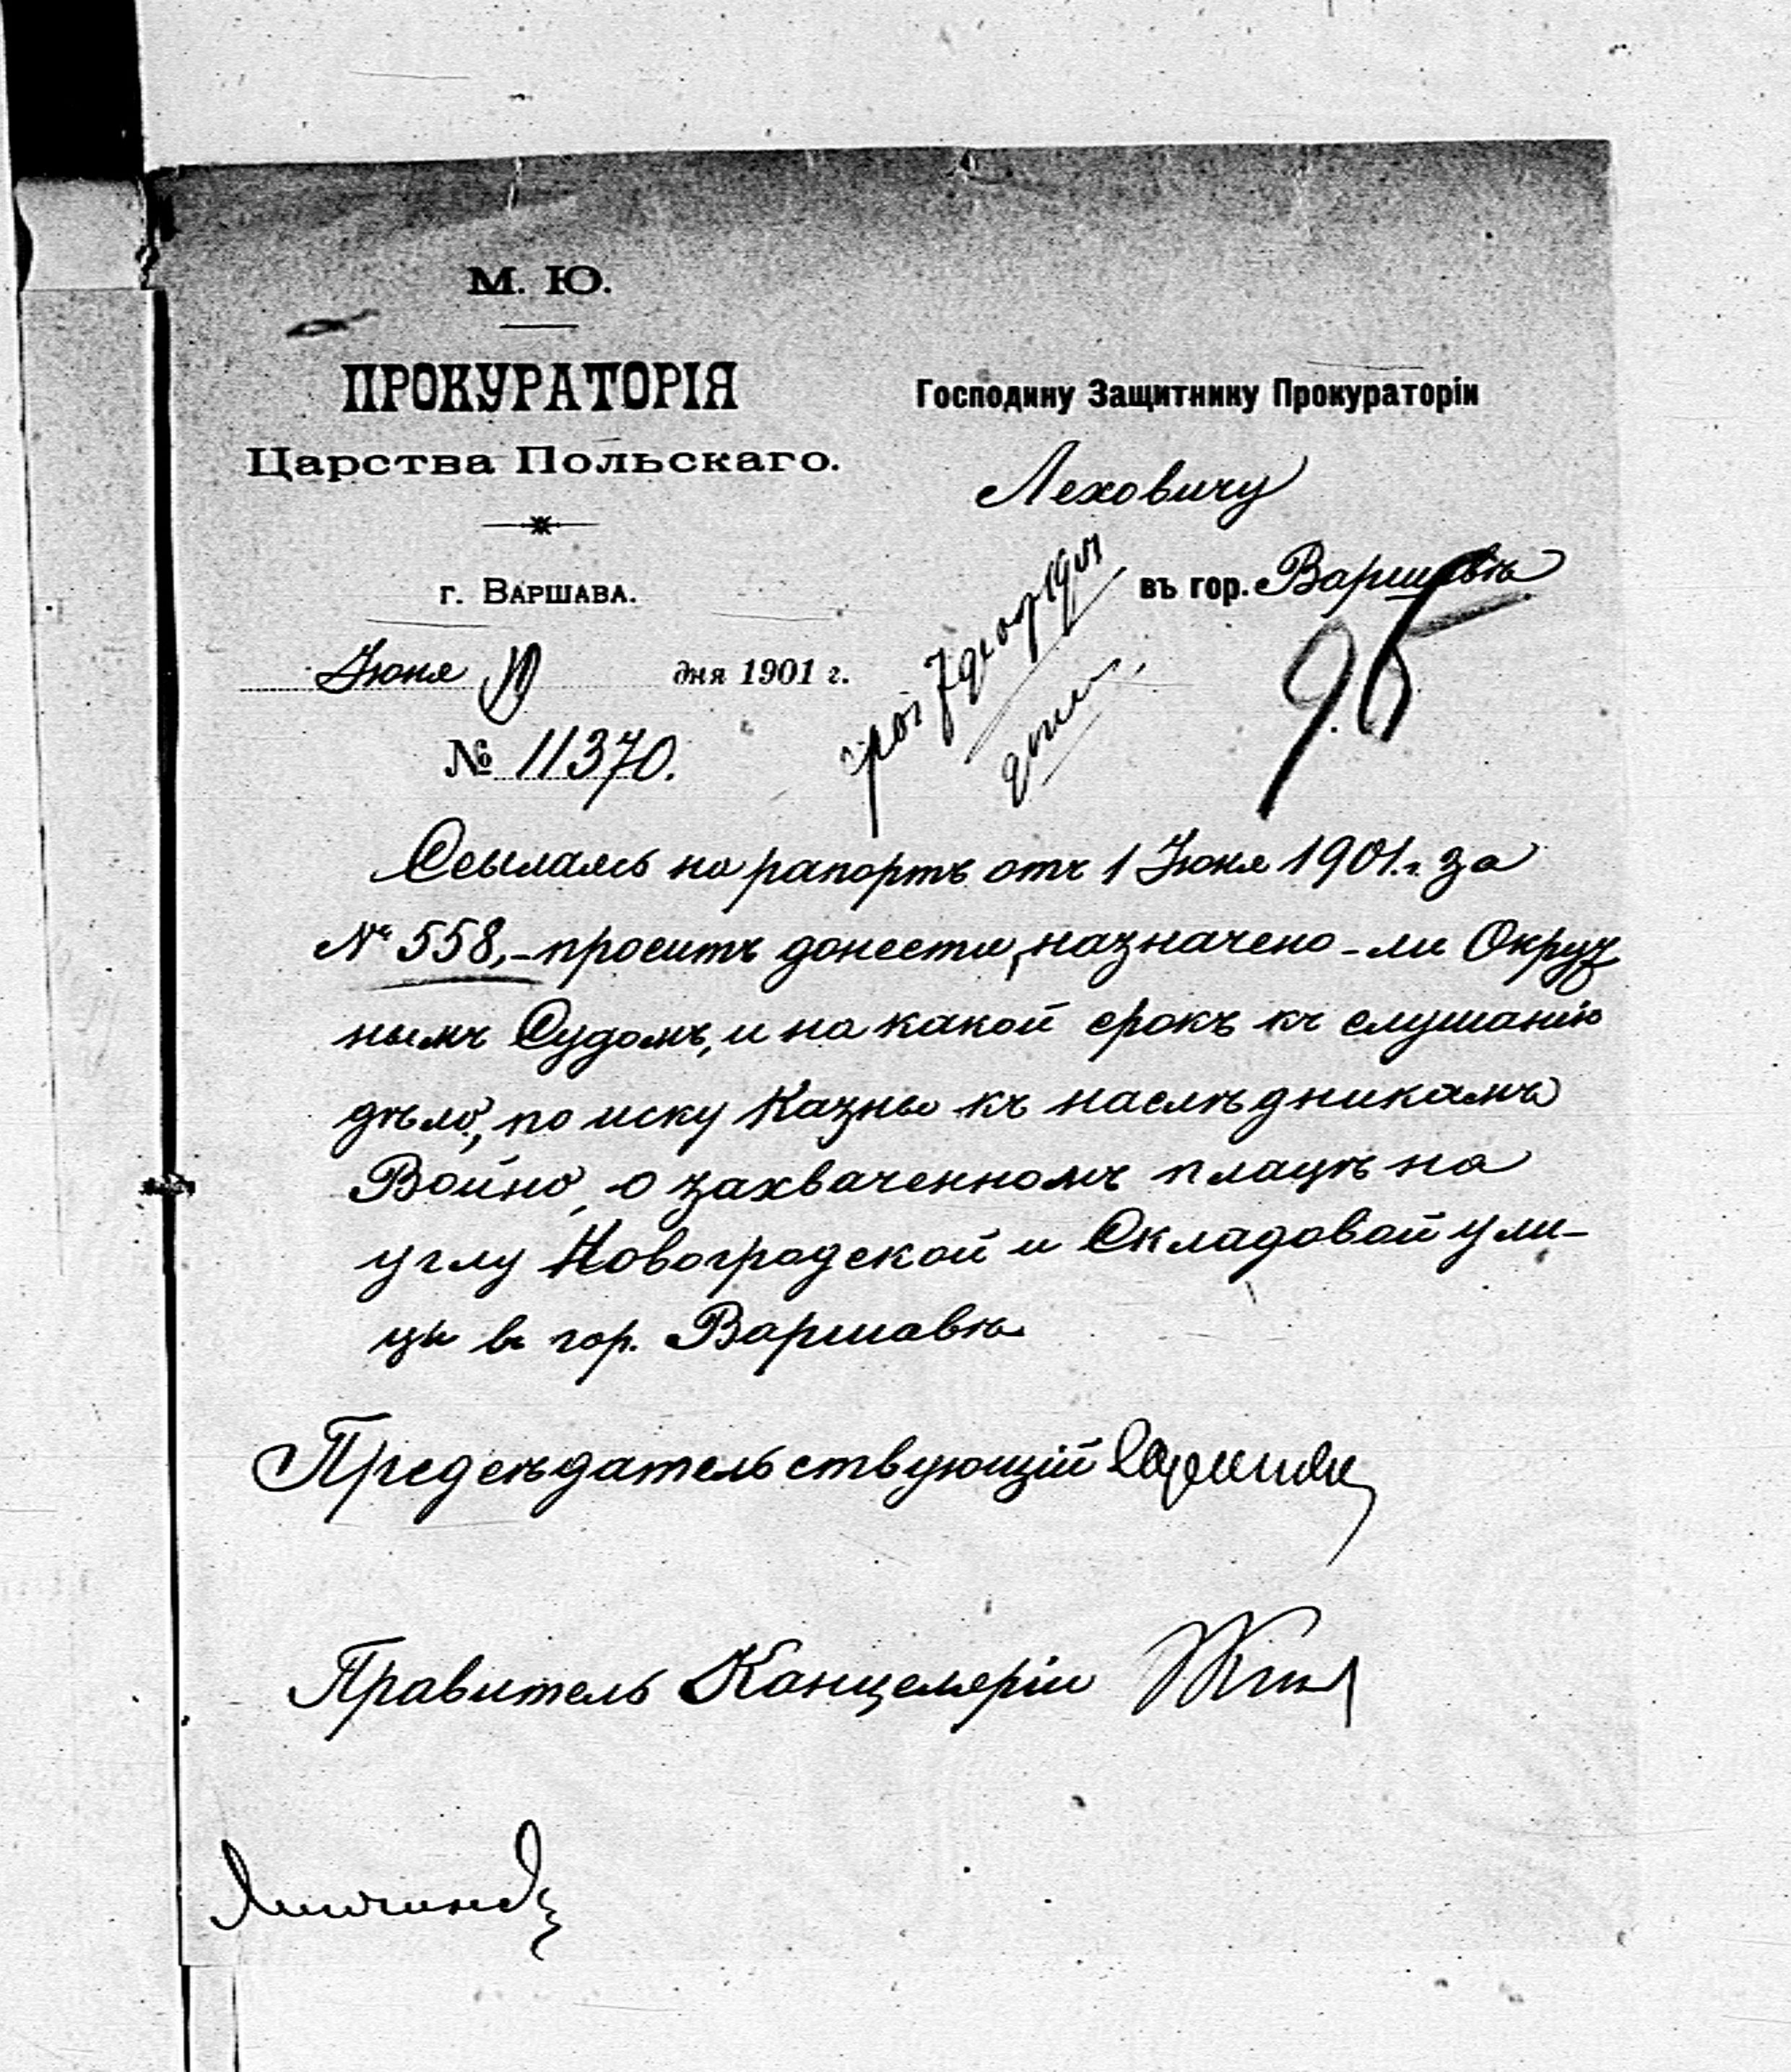 М. Ю.
ПРОКУРАТОРІЯ
Царства Польскаго.
г. ВАРШАВА.
Іюня дня 1901 г.
№ 11370.
Господину Защитнику Прокураторіи
Леховичу
въ гор. Варшавѣ
95
Ссылаясь на рапортъ отъ 1 Іюня 1901 г. за
№ 558,-проситъ донести, назначено-ли Окруж
нымъ Судомъ, и на какой срокъ къ слушанію
дѣло, по иску Казны къ наслѣдникамъ
Войно, о захваченномъ плацѣ на
углу Новогродской и Складовой ули-
цъ въ гор. Варшавѣ
Предсѣдательствующій
Правитель Канцеляріи